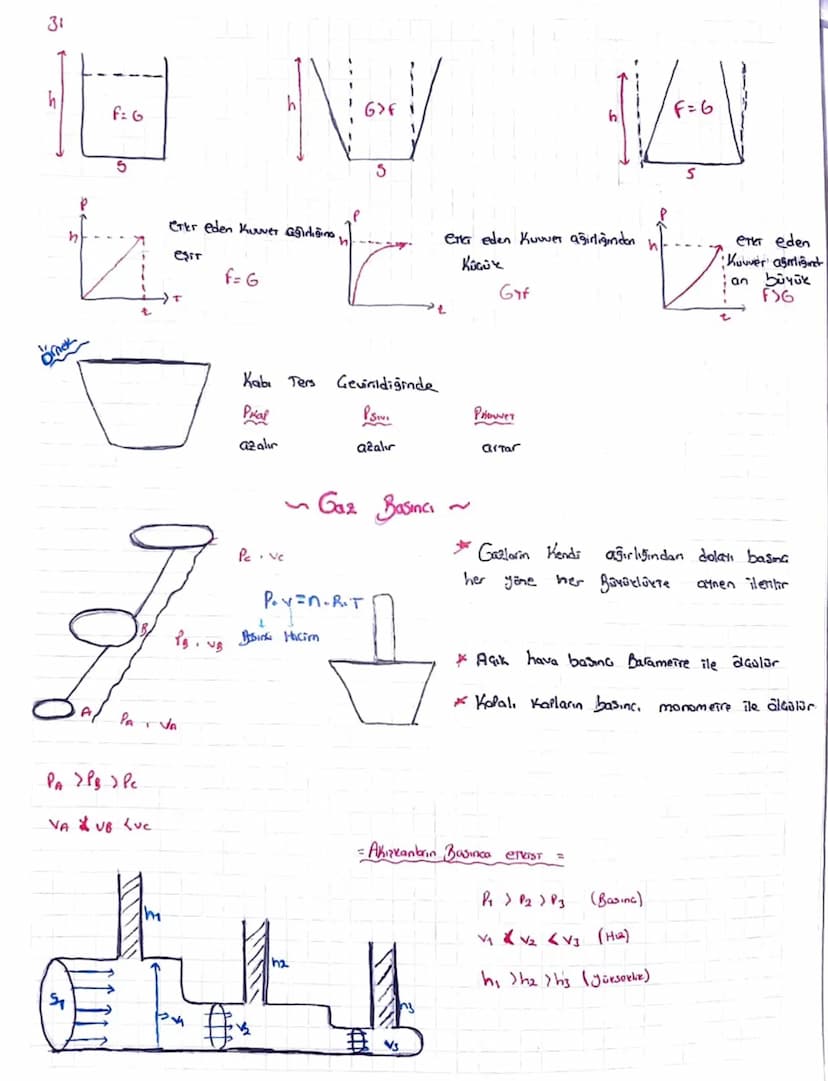 31
h
F=G
S
h
G>F
S
h
F=G
S
P
h
t
T
Etki eden Kuvvet ağırlığına
eşit
F=G
P
h
t
etki eden Kuvvet ağırlığından
Küçük
G>F
P
h
t
etki eden
Kuvvet ağırlığınd
an büyük
F>G
Örnek
Kabı Ters Çevirildiğinde
Pkatı Psıvı Pkuvvet
azalır azalır artar
~ Gaz Basıncı ~
Pc , Vc
B
PB , VB
A
PA , VA
P.V=n.R.T
Basınç Hacim
* Gazların Kendi ağırlığından dolayı basınç
her yöne her Büyüklükte aynen iletilir
* Açık hava basıncı Barametre ile ölçülür
* Kapalı Kapların basıncı monometre ile ölçülür
PA >PB >PC
VA < VB < VC
= Akışkanların Basınca etkisi =
P1 > P2 > P3 (Basınç)
V1 < V2 < V3 (Hız)
h1 >h2 >h3 (yükseklik)
h1
h2
h3
S1
V1
V2
V3